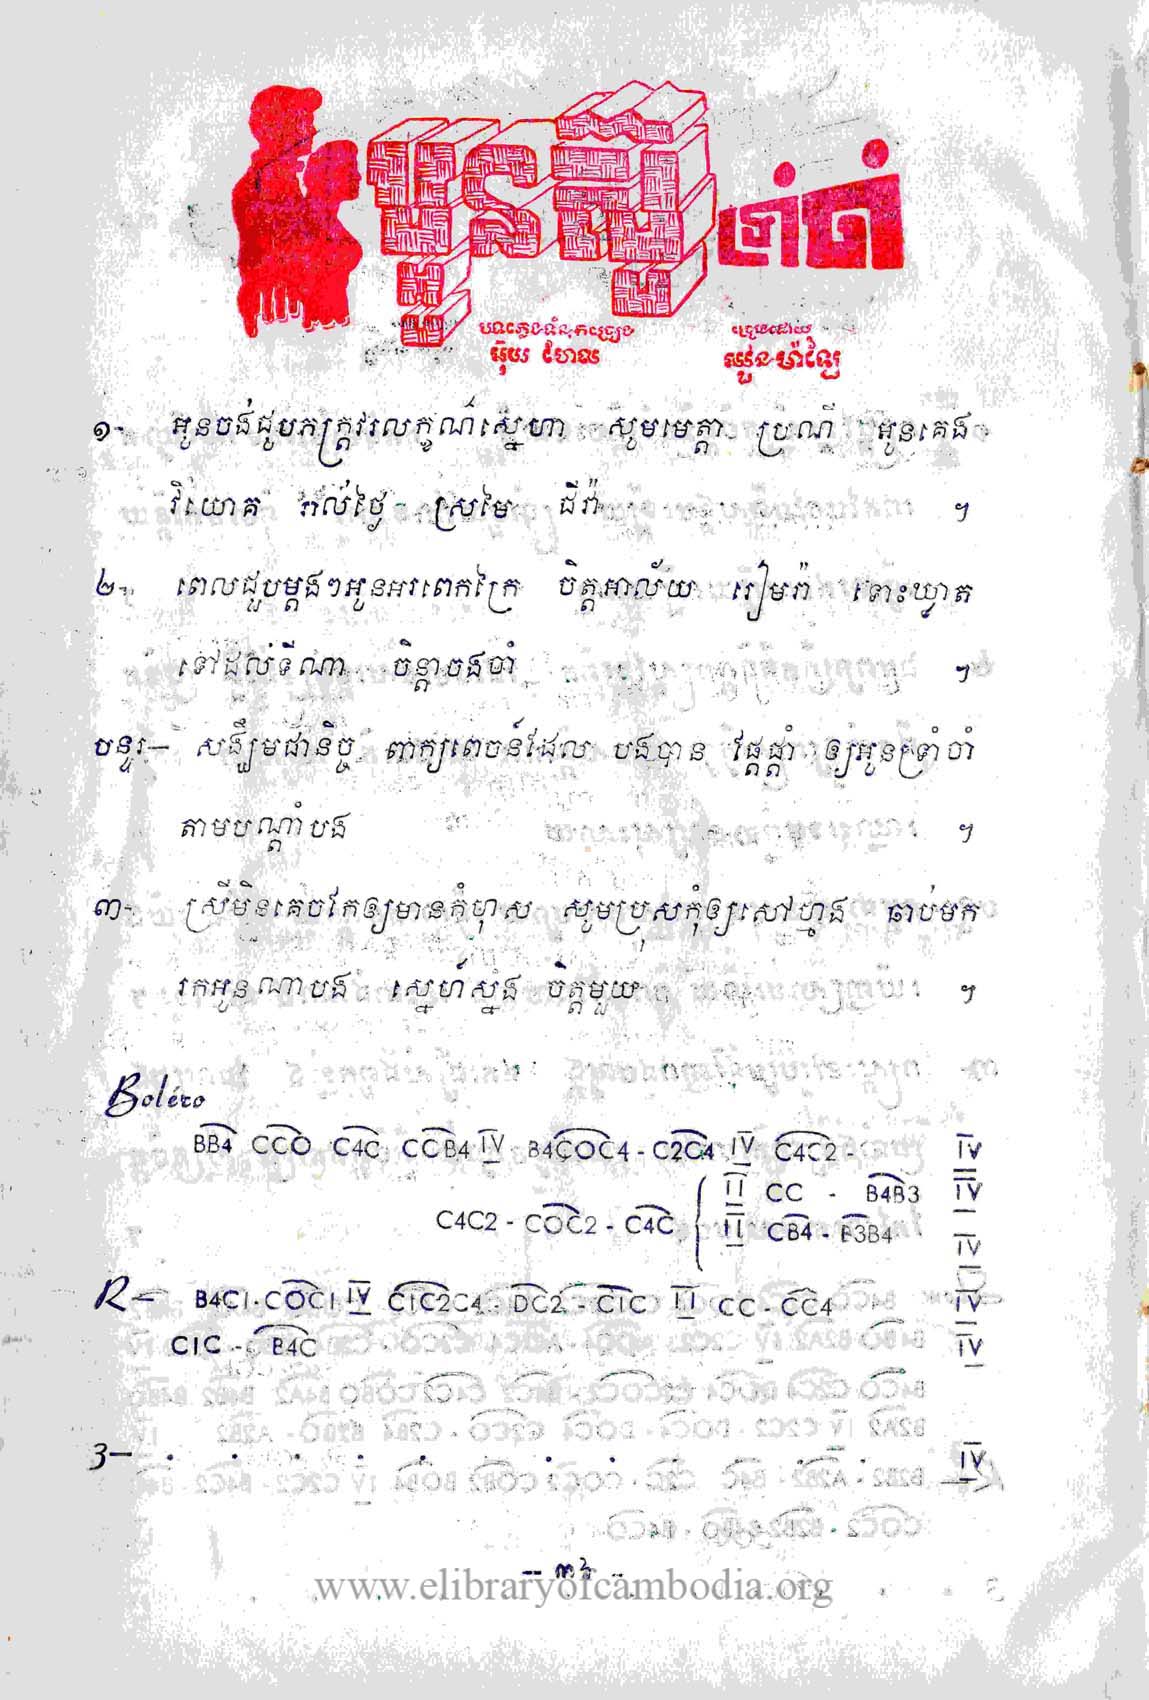 អូនស៊ូទាំចាំ
បទភ្លេងទំនុកច្រៀង
អ៊ុយ ហែល
ច្រៀងដោយ
ឈួន ម៉ាឡៃ
១- អូនចង់ជួបភក្ត្រវរលក្ខណ៍ស្នេហា សូមមេត្តា ប្រណី អូនគេង
វិយោគ រាល់ថ្ងៃ ស្រមៃ ជីវ៉ា ។
២- ពេលជួបម្តងៗអូនអរពេកក្រៃ ចិត្តអាល័យ រៀមរ៉ា ទោះឃ្លាត
ទៅដល់ទីណា ចិន្តាចងចាំ ។
បន្ទរ- សង្ឃឹមជានិច្ច ពាក្យពេចន៍ដែល បងបាន ផ្តែផ្តាំ ឲ្យអូនទ្រាំចាំ
តាមបណ្តាំបង ។
៣- ស្រីមិនគេចកែឲ្យមានកំហុស សូមប្រុសកុំឲ្យសៅហ្មង ឆាប់មក
រកអូនណាបង ស្នេហ៍ស្នង ចិត្តមួយ ។
Boléro
BB4 CCO C4C CCB4 IV B4COC4 - C2C4 IV C4C2 - IV
C4C2 - COC2 - C4C { II CC - B4B3 IV
II CB4 - B3B4 IV
R- B4C1 - COC1 IV C1C2C4 - DC2 - C1C II CC - CC4 IV
C1C - B4C IV
3- . . . . . . . . . . . . IV
-- ៣៦ --
www.elibraryofcambodia.org